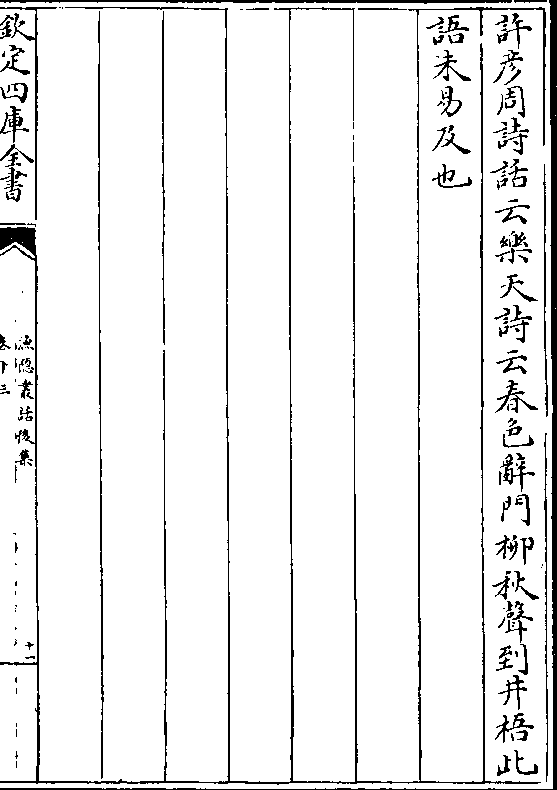 許彦周詩話云樂天詩云春色辭門柳秋聲到井梧此
語未易及也
欽定四庫全書
漁隱叢話後集
卷十三
十一